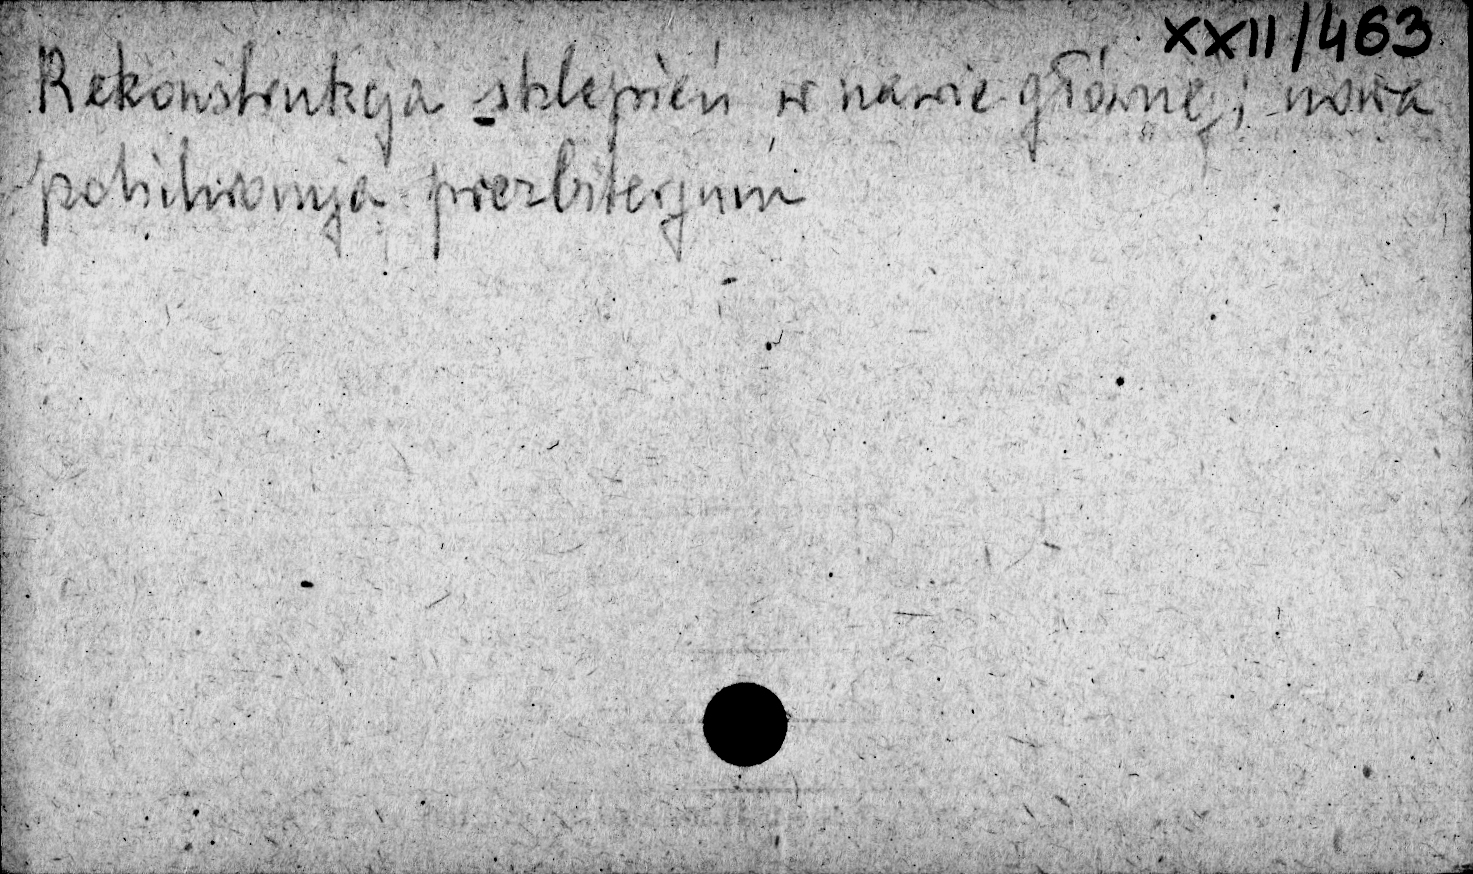 XXII/463
Rekonstrukcja sklepień w nawie głównej; nowa
polichromja prezbiterjum